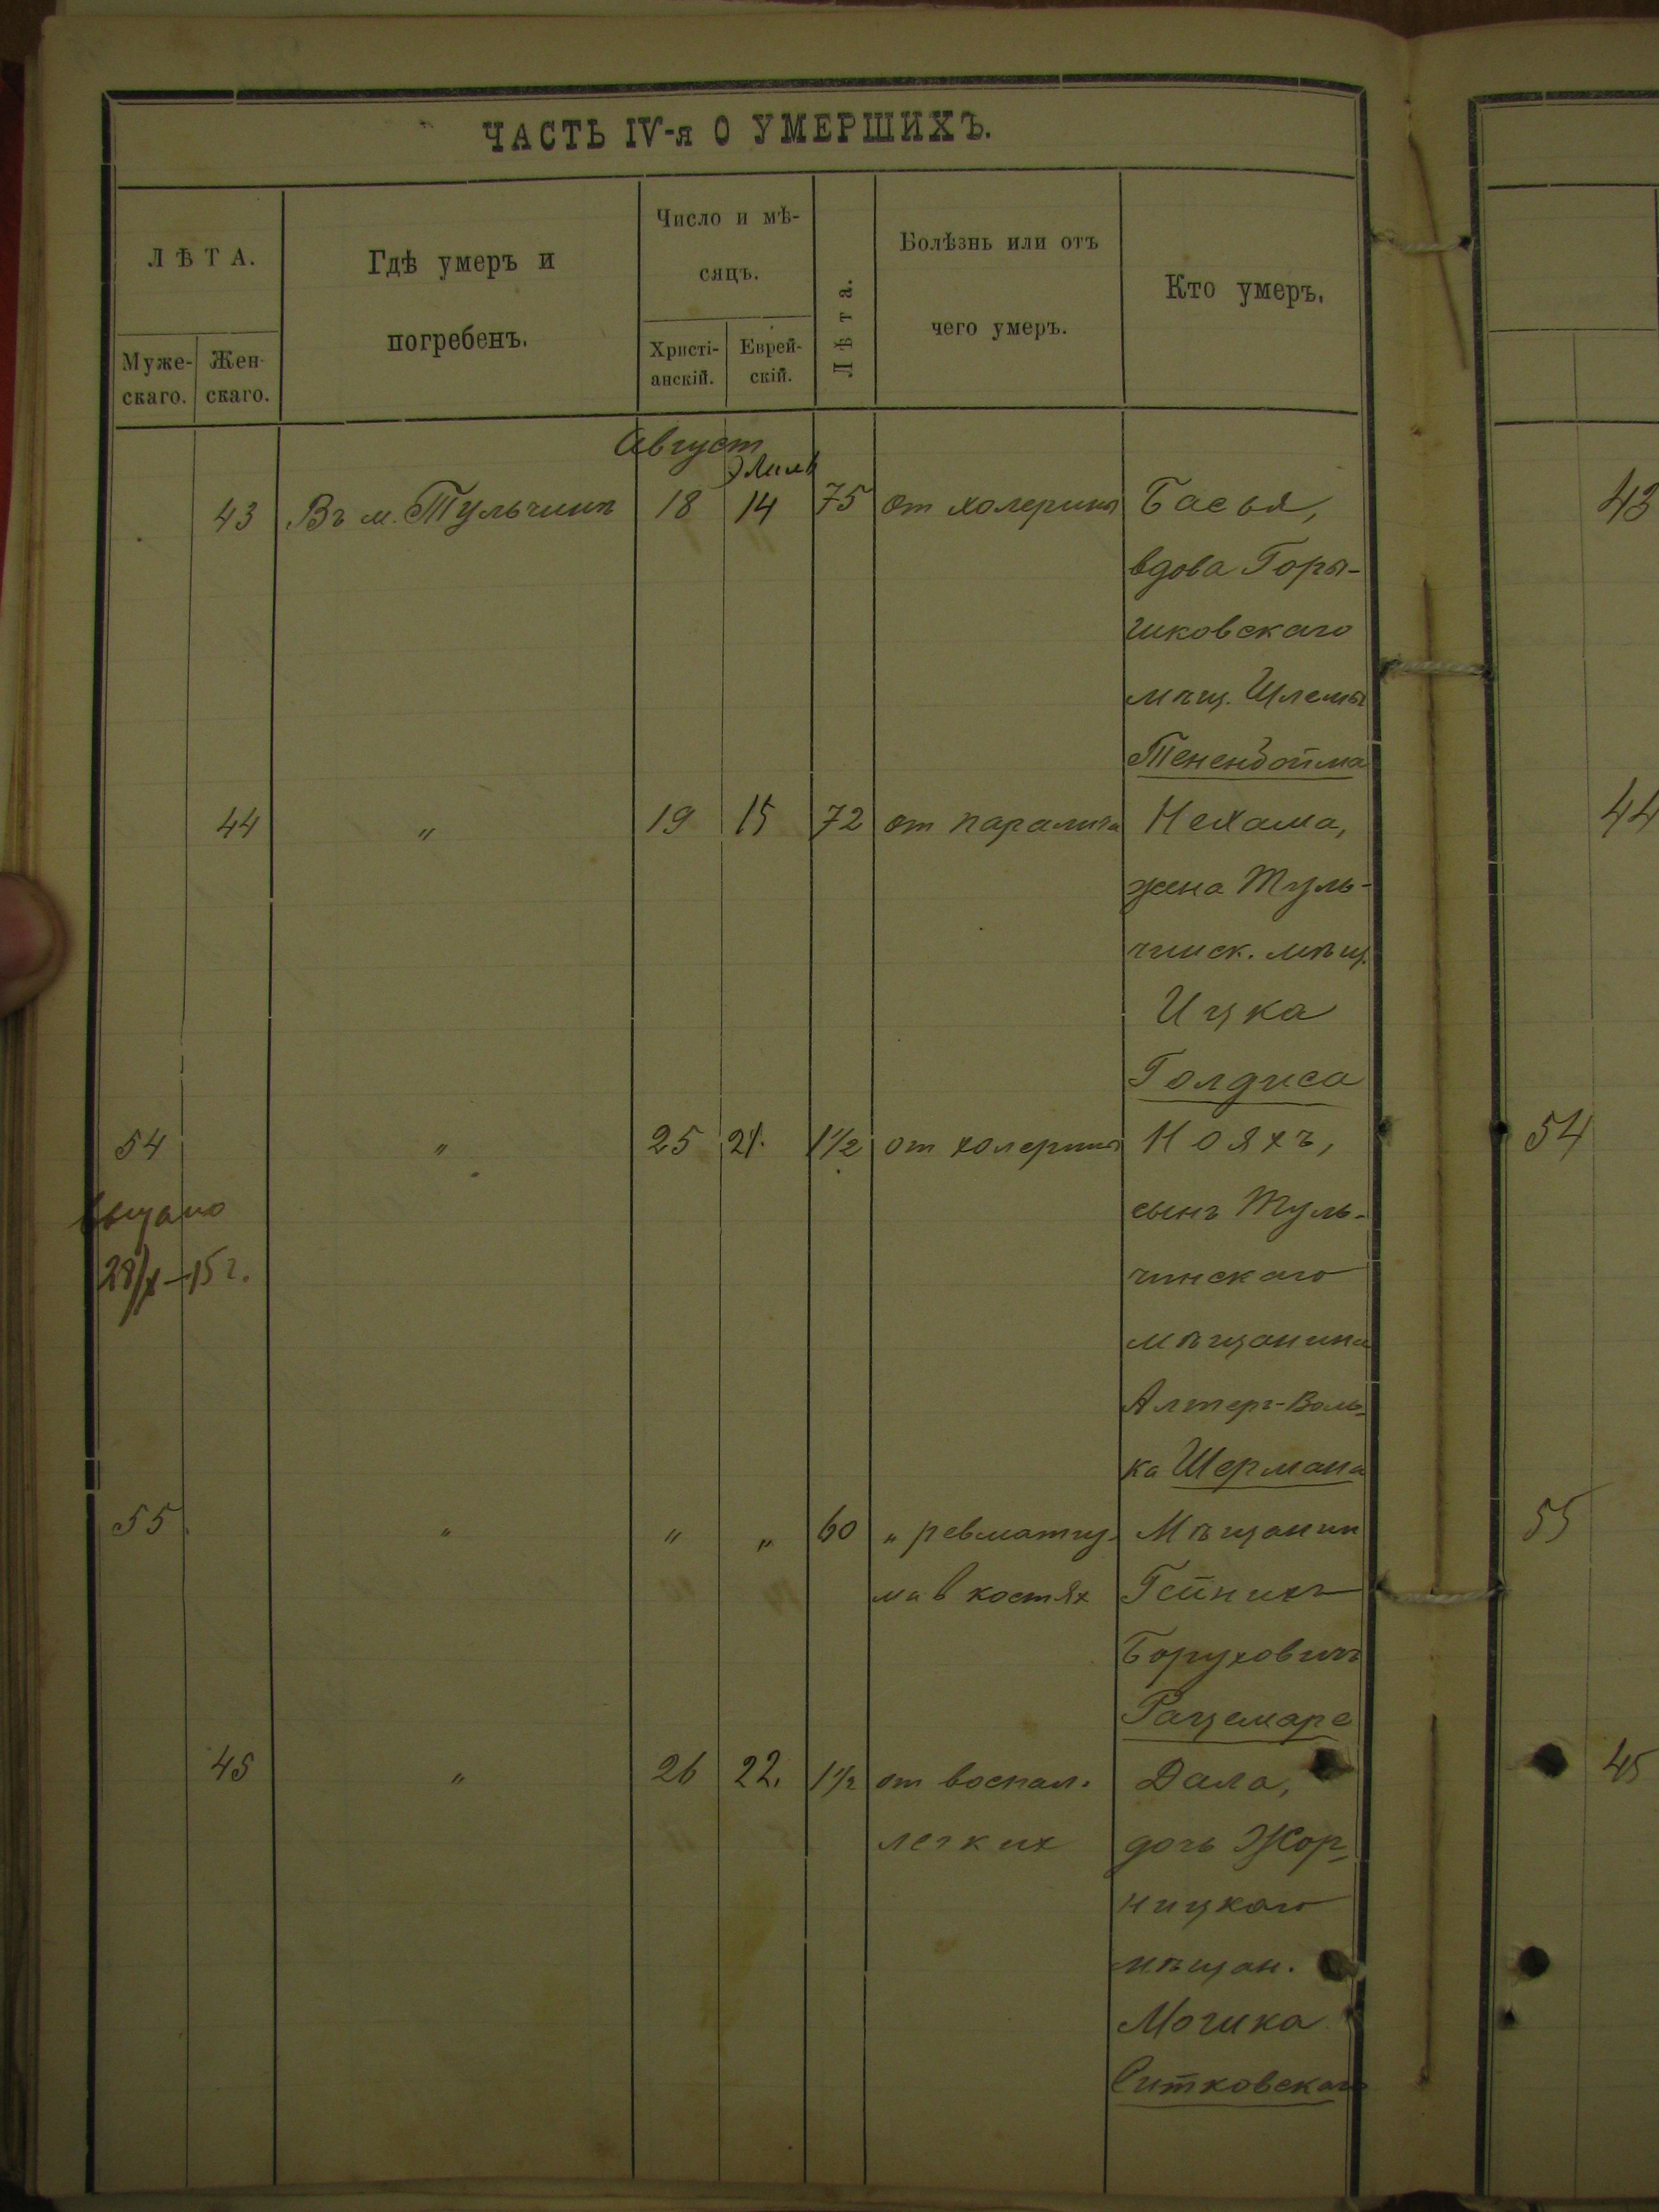 ЧАСТЬ IV-я О УМЕРШИХЪ.
ЛѢТА.
Муже-
скаго.
Жен-
скаго.
Гдѣ умеръ и
погребенъ.
Число и мѣ-
сяцъ.
Христі-
анскій.
Еврей-
скій.
Лѣта.
Болѣзнь или отъ
чего умеръ.
Кто умеръ.
Август
Элиль
43 Въ м. Тульчинѣ 18 14 75 от холерины Басья,
вдова Горы-
шковскаго
мѣщ. Шлемы
Тененбойма
44 " 19 15 72 от паралича Нехама,
жена Туль-
чинск. мѣщ.
Ицка
Голдиса
54 " 25 21. 1½ от холерины Нояхъ,
выдано
28/X-15 г.
сынъ Туль-
чинскаго
мѣщанина
Алтеръ-Воль-
ка Шермана
55 " " " 60 " ревматиз- Мѣщанин
ма в костях Гейнихъ
Боруховичъ
Рацемаре
45 " 26 22. 1½ от воспал. Дала,
легких дочь Жор-
ницкаго
мѣщан.
Мошка
Ситковскаго
43
44
54
55
45